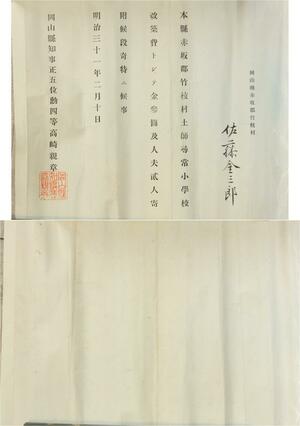 岡山縣赤坂郡竹枝村
佐藤金三郎
本縣赤坂郡竹枝村土師尋常小學校
改築費トシテ金參圓及人夫貳人寄
附候段奇特ニ候事
明治三十一年二月十日
岡山縣知事正五位勳四等高崎親章